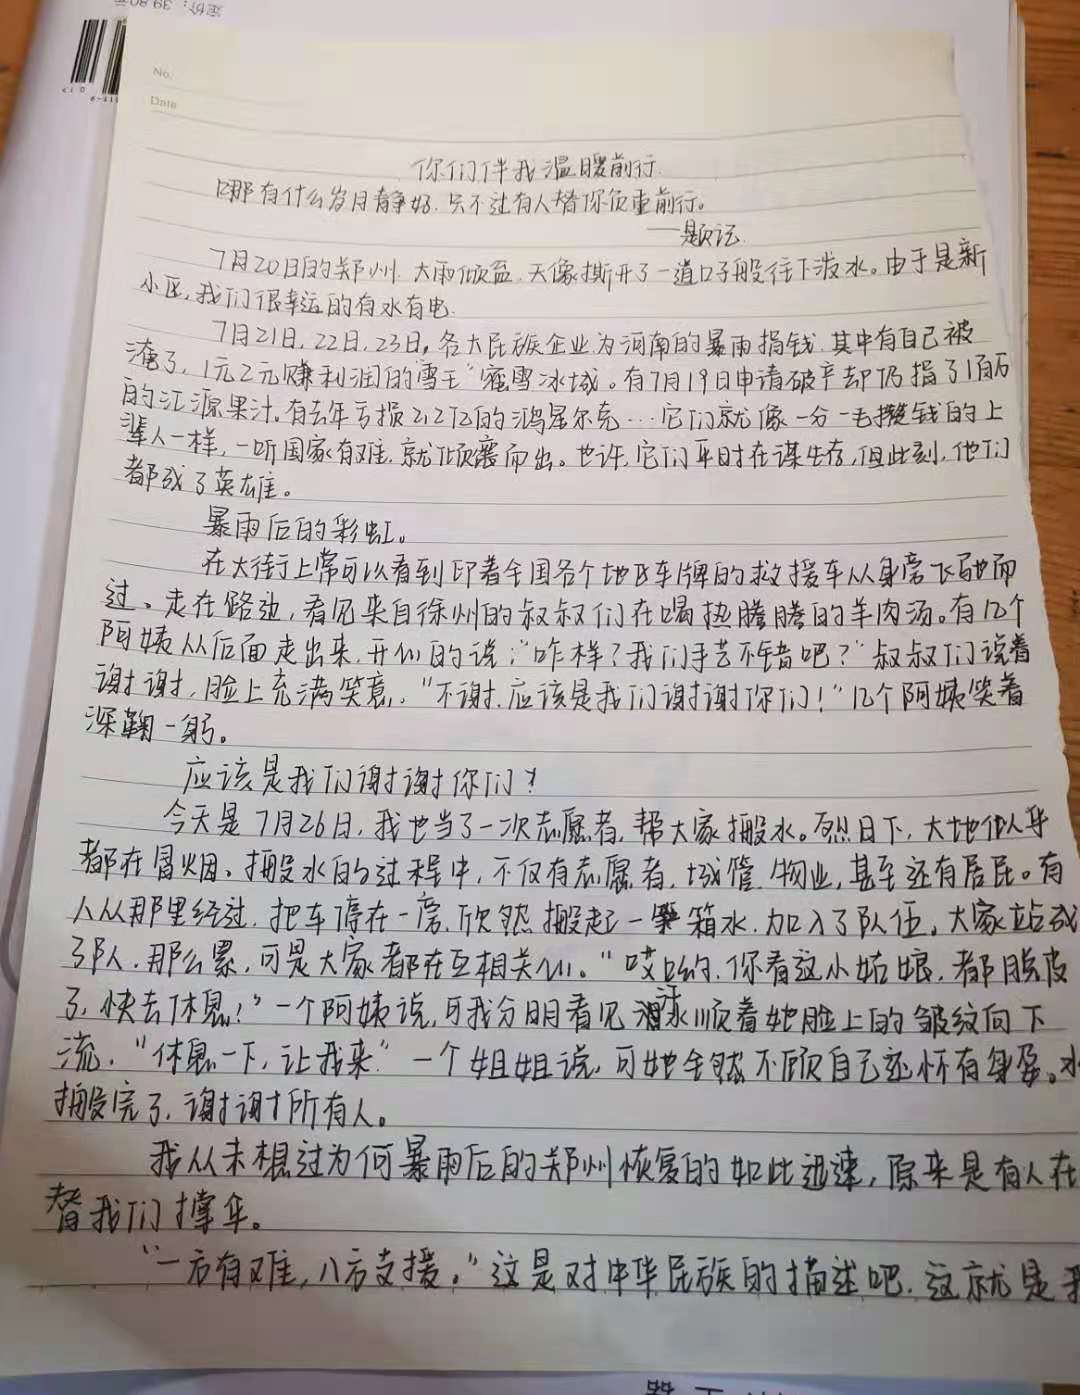 定价：39.80元
No.
Date
你们伴我温暖前行.
哪有什么岁月静好.只不过有人替你负重前行。
——题记.
7月20日的郑州.大雨倾盆.天像撕开了一道口子般往下泼水。由于是新
小区,我们很幸运的有水有电.
7月21日,22日,23日,各大民族企业为河南的暴雨捐钱.其中有自己被
淹了,1元2元赚利润的雪王"蜜雪冰城。有7月19日申请破产却仍捐了1百万
的汇源果汁.有去年亏损2.2亿的鸿星尔克…它们就像一分一毛攒钱的上
辈人一样,一听国家有难.就倾囊而出。也许,它们平时在谋生存,但此刻,他们
都成了英雄。
暴雨后的彩虹。
在大街上常可以看到印着全国各个地区车牌的救援车从身旁飞驰而
过、走在路边,看见来自徐州的叔叔们在喝热腾腾的羊肉汤。有几个
阿姨从后面走出来.开心的说:"咋样?我们手艺不错吧?"叔叔们说着
谢谢,脸上充满笑意,"不谢.应该是我们谢谢你们!"几个阿姨笑着
深鞠一躬。
应该是我们谢谢你们!
今天是7月26日,我也当了一次志愿者,帮大家搬水。烈日下,大地似乎
都在冒烟、搬水的过程中,不仅有志愿者,城管.物业,甚至还有居民。有
人从那里经过.把车停在一旁,欣然搬起一箱水.加入了队伍。大家站成
了队.那么累,可是大家都在互相关心."哎哟,你看这小姑娘,都脱皮
了,快去休息!"一个阿姨说,可我分明看见汗水顺着她脸上的皱纹向下
流."休息一下,让我来"一个姐姐说,可她全然不顾自己还怀有身孕。水
搬完了,谢谢所有人。
我从未想过为何暴雨后的郑州恢复的如此迅速,原来是有人在
替我们撑伞。
"一方有难,八方支援。"这是对中华民族的描述吧.这就是我